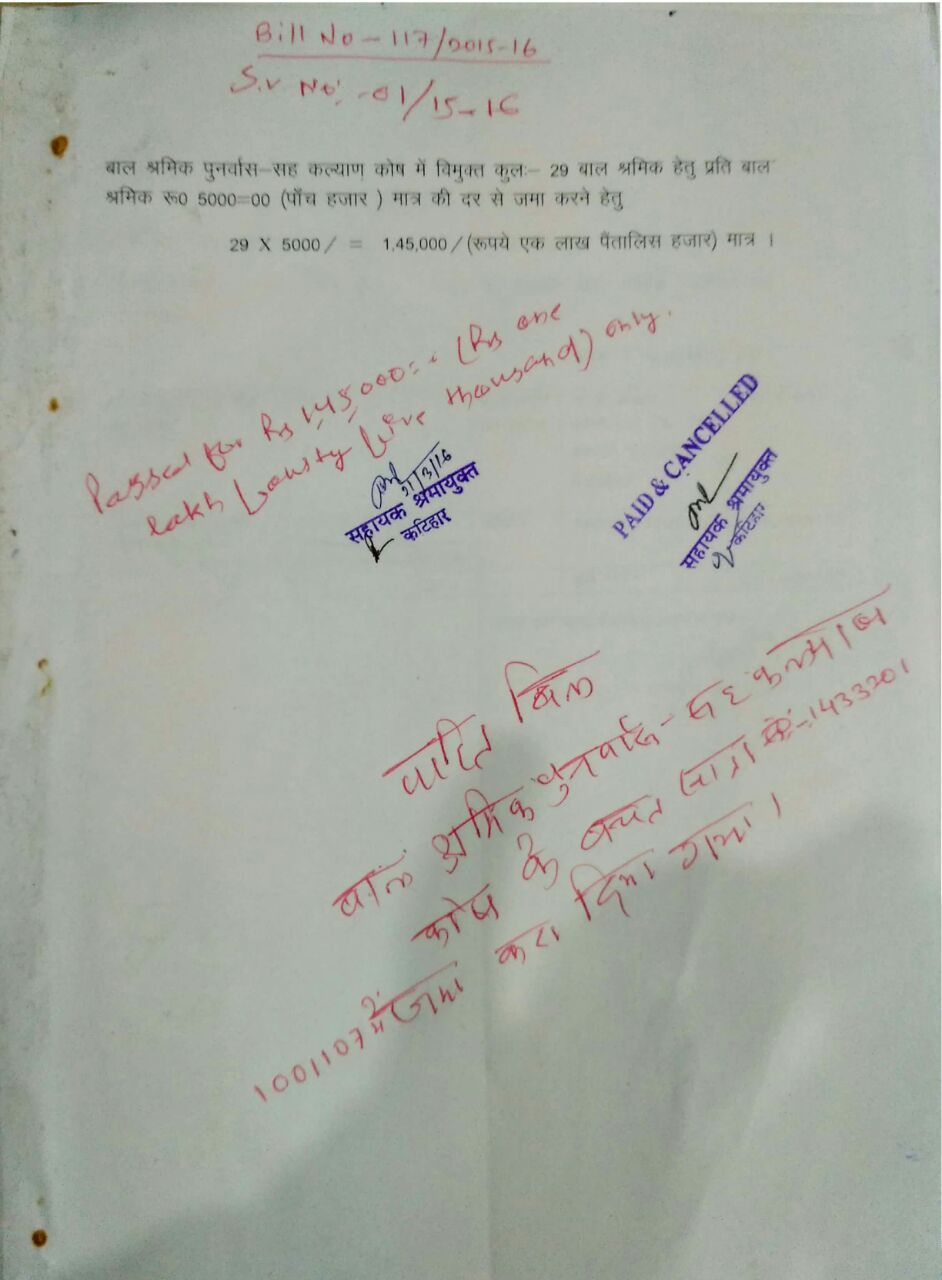 Bill No - 117/2015-16
S.V No: - 01/15-16
बाल श्रमिक पुनर्वास-सह कल्याण कोष में विमुक्त कुलः- 29 बाल श्रमिक हेतु प्रति बाल
श्रमिक रू0 5000=00 (पाँच हजार ) मात्र की दर से जमा करने हेतु
29 X 5000 / = 1,45,000 / (रूपये एक लाख पैंतालिस हजार) मात्र ।
Passed for Rs 1,45,000=. (Rs one
lakh fourty five thousand) only.
31/3/16
सहायक श्रमायुक्त
कटिहार
PAID & CANCELLED
सहायक श्रमायुक्त
कटिहार
पारित बिल
बाल श्रमिक पुनर्वास - सह कल्याण
कोष के बचत खाता सं:-1433201
1001107 में जमा करा दिया गया ।